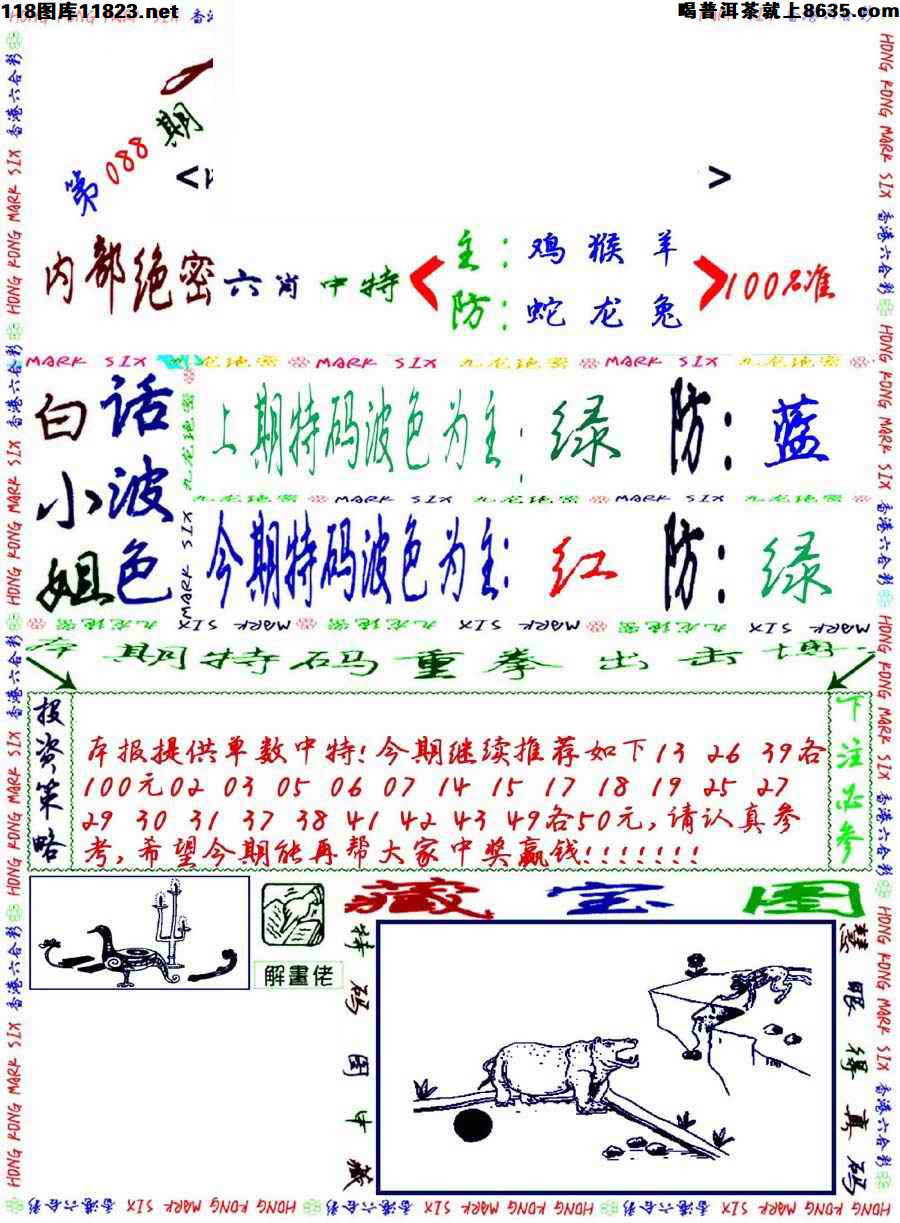 118图库11823.net
喝普洱茶就上8635.com
HONG KONG MARK SIX 香港六合彩
第088期
< >
内部绝密六肖中特
主：鸡猴羊
防：蛇龙兔
100%准
MARK SIX 九龙绝密 MARK SIX 九龙绝密 MARK SIX 九龙绝密
白小姐
话波色
上期特码波色为主：绿 防：蓝
九龙绝密 MARK SIX 九龙绝密 MARK SIX 九龙绝密 MARK SIX
今期特码波色为主：红 防：绿
九龙绝密 MARK SIX 九龙绝密 MARK SIX 九龙绝密 MARK SIX
本期特码重拳出击
投资策略
本报提供单数中特!今期继续推荐如下13 26 39各
100元02 03 05 06 07 14 15 17 18 19 25 27
29 30 31 37 38 41 42 43 49各50元,请认真参
考,希望今期能再帮大家中奖赢钱!!!!!!!
下注必参
解畫佬
藏宝图
特码图中藏
慧眼得真码
HONG KONG MARK SIX 香港六合彩